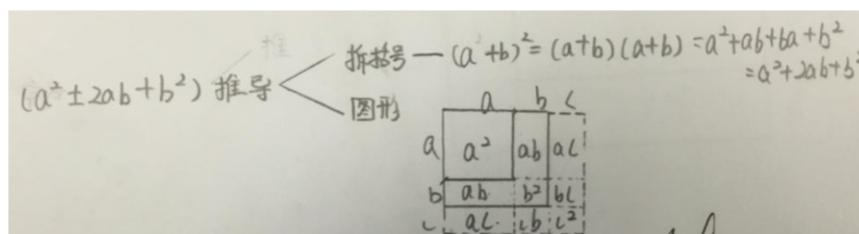 (a²±2ab+b²) 推导
推
拆括号 — (a²+b)² = (a+b)(a+b) = a²+ab+ba+b²
= a²+2ab+b²
图形
a b c
a a² ab ac
b ab b² bc
c ac. cb c²